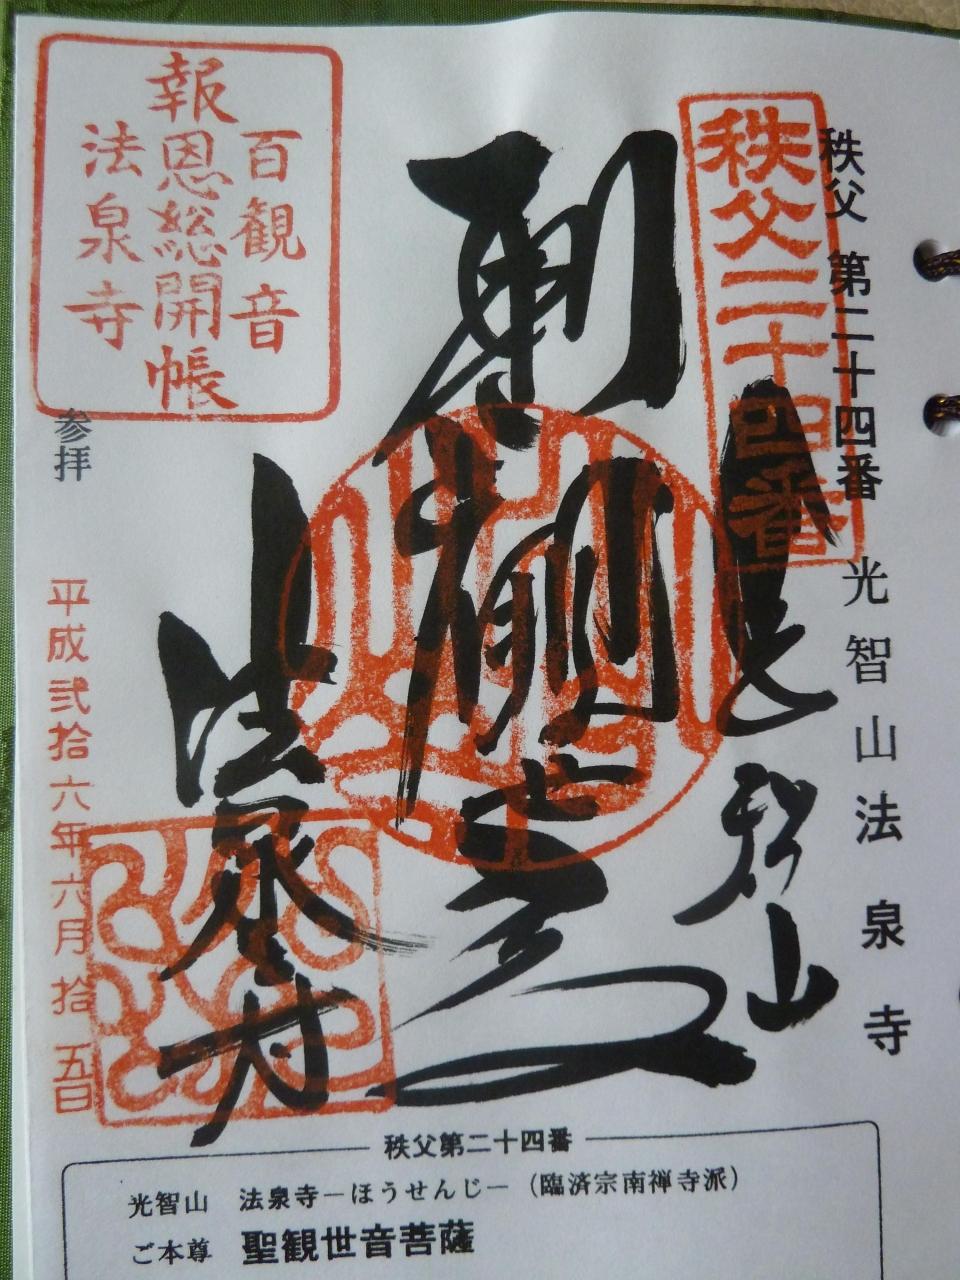 秩父 第二十四番 光智山 法泉寺
秩父二十四番
聖観世音
法泉寺
百観音
報恩総開帳
法泉寺
参拝
平成弐拾六年六月拾五日
秩父第二十四番
光智山 法泉寺－ほうせんじ－（臨済宗南禅寺派）
ご本尊 聖観世音菩薩